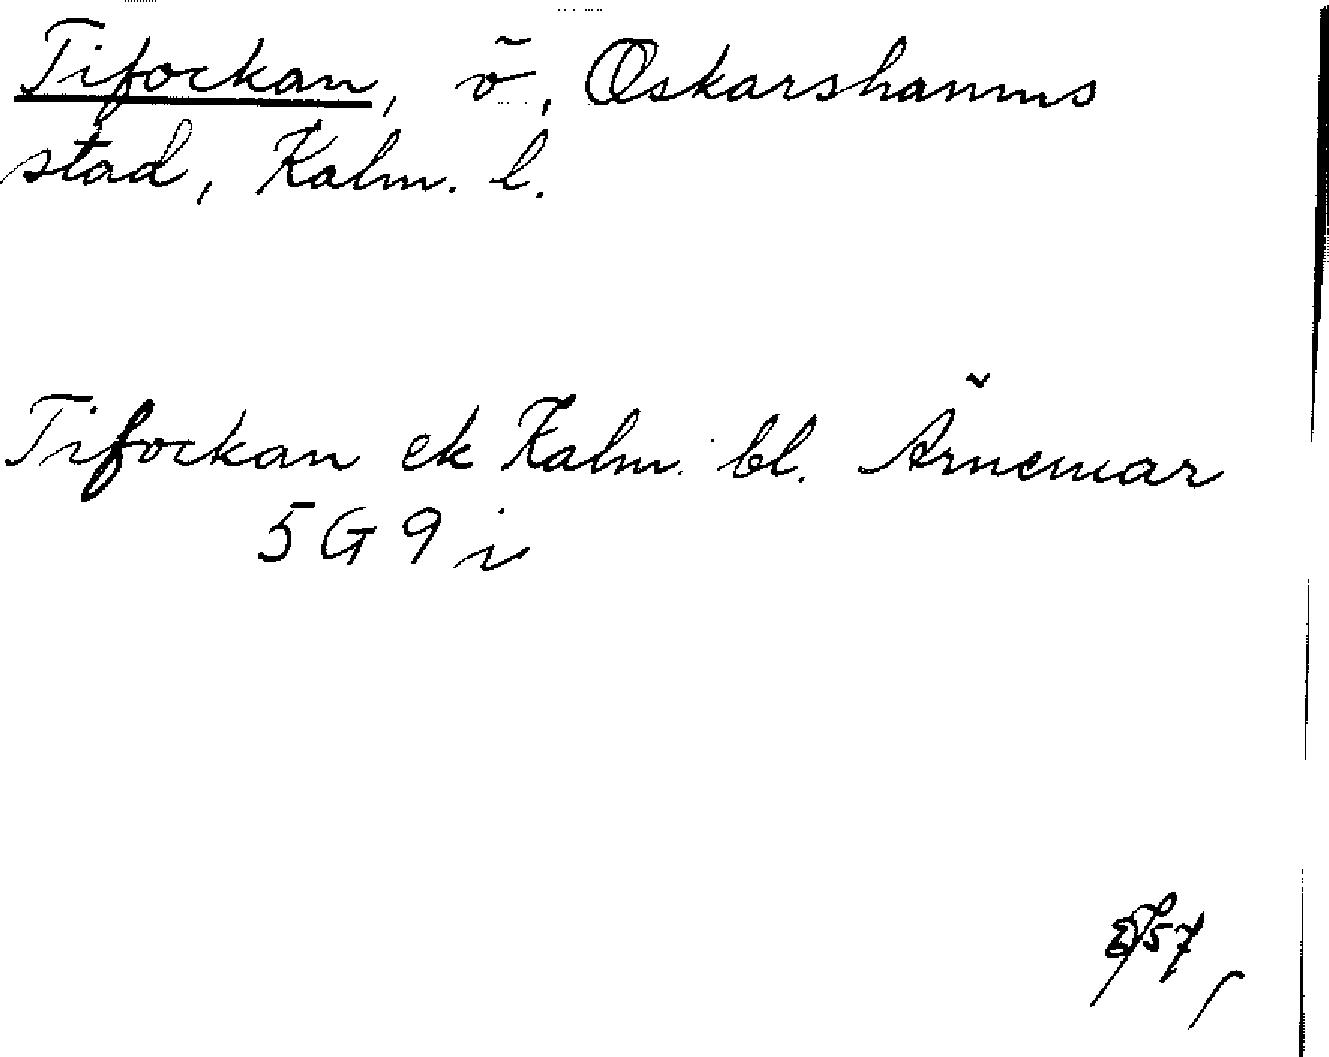 Tifockan, ö, Oskarshamns
stad, Kalm. l.
Tifockan ek Kalm. bl. Ärnemar
5G9i